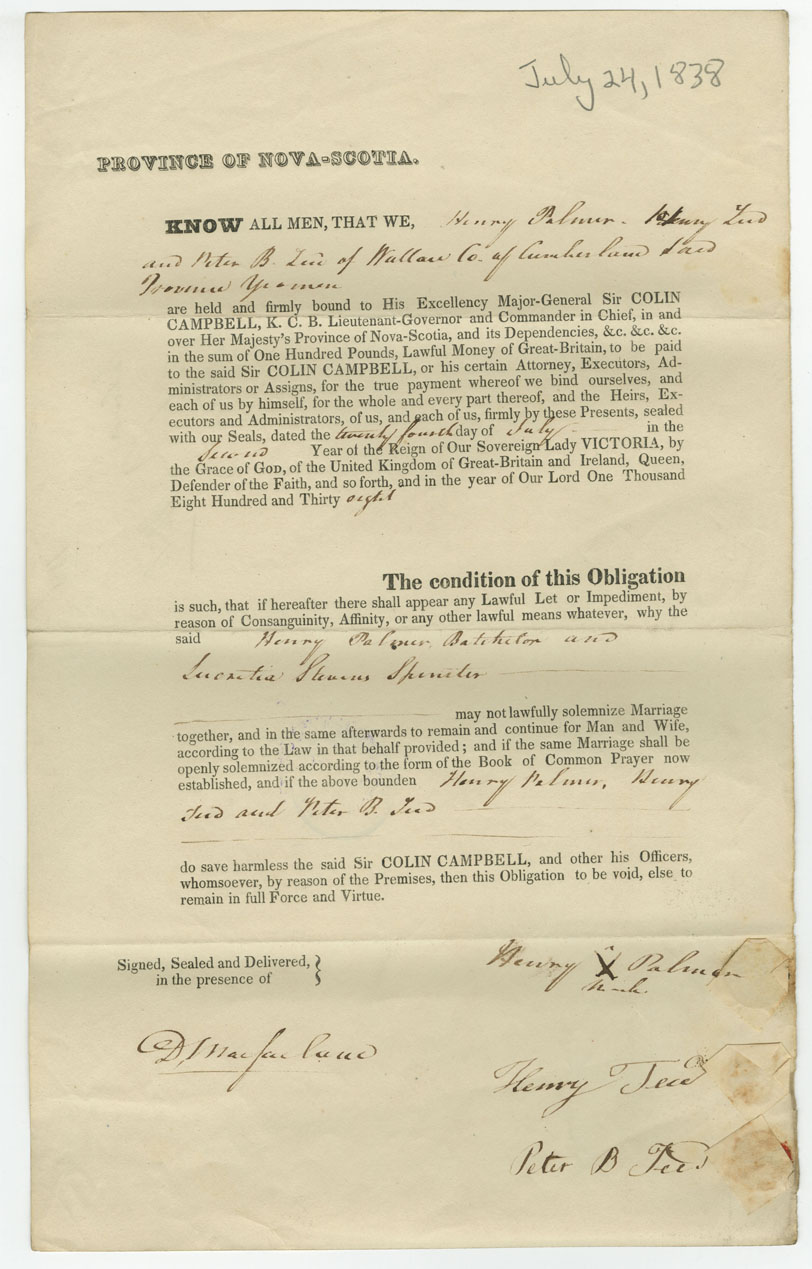 July 24, 1838
PROVINCE OF NOVA-SCOTIA.
KNOW ALL MEN, THAT WE, Henry Palmer - Henry Teed
and Peter B. Teed of Wallace Co. of Cumberland Said
Province Yeomen
are held and firmly bound to His Excellency Major-General Sir COLIN
CAMPBELL, K. C. B. Lieutenant-Governor and Commander in Chief, in and
over Her Majesty's Province of Nova-Scotia, and its Dependencies, &c. &c. &c.
in the sum of One Hundred Pounds, Lawful Money of Great-Britain, to be paid
to the said Sir COLIN CAMPBELL, or his certain Attorney, Executors, Ad-
ministrators or Assigns, for the true payment whereof we bind ourselves, and
each of us by himself, for the whole and every part thereof, and the Heirs, Ex-
ecutors and Administrators, of us, and each of us, firmly by these Presents, sealed
with our Seals, dated the twenty fourth day of July in the
Second Year of the Reign of Our Sovereign Lady VICTORIA, by
the Grace of GOD, of the United Kingdom of Great-Britain and Ireland, Queen,
Defender of the Faith, and so forth, and in the year of Our Lord One Thousand
Eight Hundred and Thirty eight
The condition of this Obligation
is such, that if hereafter there shall appear any Lawful Let or Impediment, by
reason of Consanguinity, Affinity, or any other lawful means whatever, why the
said Henry Palmer, Batchelor and
Lucretia Stevens Spinster
may not lawfully solemnize Marriage
together, and in the same afterwards to remain and continue for Man and Wife,
according to the Law in that behalf provided; and if the same Marriage shall be
openly solemnized according to the form of the Book of Common Prayer now
established, and if the above bounden Henry Palmer, Henry
Teed and Peter B. Teed
do save harmless the said Sir COLIN CAMPBELL, and other his Officers,
whomsoever, by reason of the Premises, then this Obligation to be void, else to
remain in full Force and Virtue.
Signed, Sealed and Delivered,
in the presence of
Henry X Palmer
mark
D Macfarlane
Henry Teed
Peter B Teed